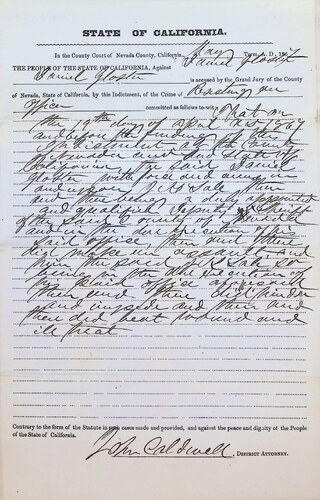 STATE OF CALIFORNIA.
In the County Court of Nevada County, California, May Term A. D. 1867
THE PEOPLE OF THE STATE OF CALIFORNIA, Against Daniel Gloster
Daniel Gloster is accused by the Grand Jury of the County
of Nevada, State of California, by this Indictment, of the Crime of Resisting an
Officer committed as follows to-wit: That on
the 19th day of April A.D. 1867
and before the finding of this
Indictment at the County
of Nevada and State of
California the said Daniel
Gloster with force and arms in
and upon Sale then
and there being a duly appointed
and qualified Deputy Sheriff
of the said County of Nevada
and in the due execution of his
said office, then and there
did make an assault and
him the said Sale so
being in the due execution of
his said office as aforesaid
then and there did hinder
and impede and then and
there did beat wound and
ill treat
Contrary to the form of the Statute in such cases made and provided, and against the peace and dignity of the People
of the State of California.
John Caldwell, DISTRICT ATTORNEY.